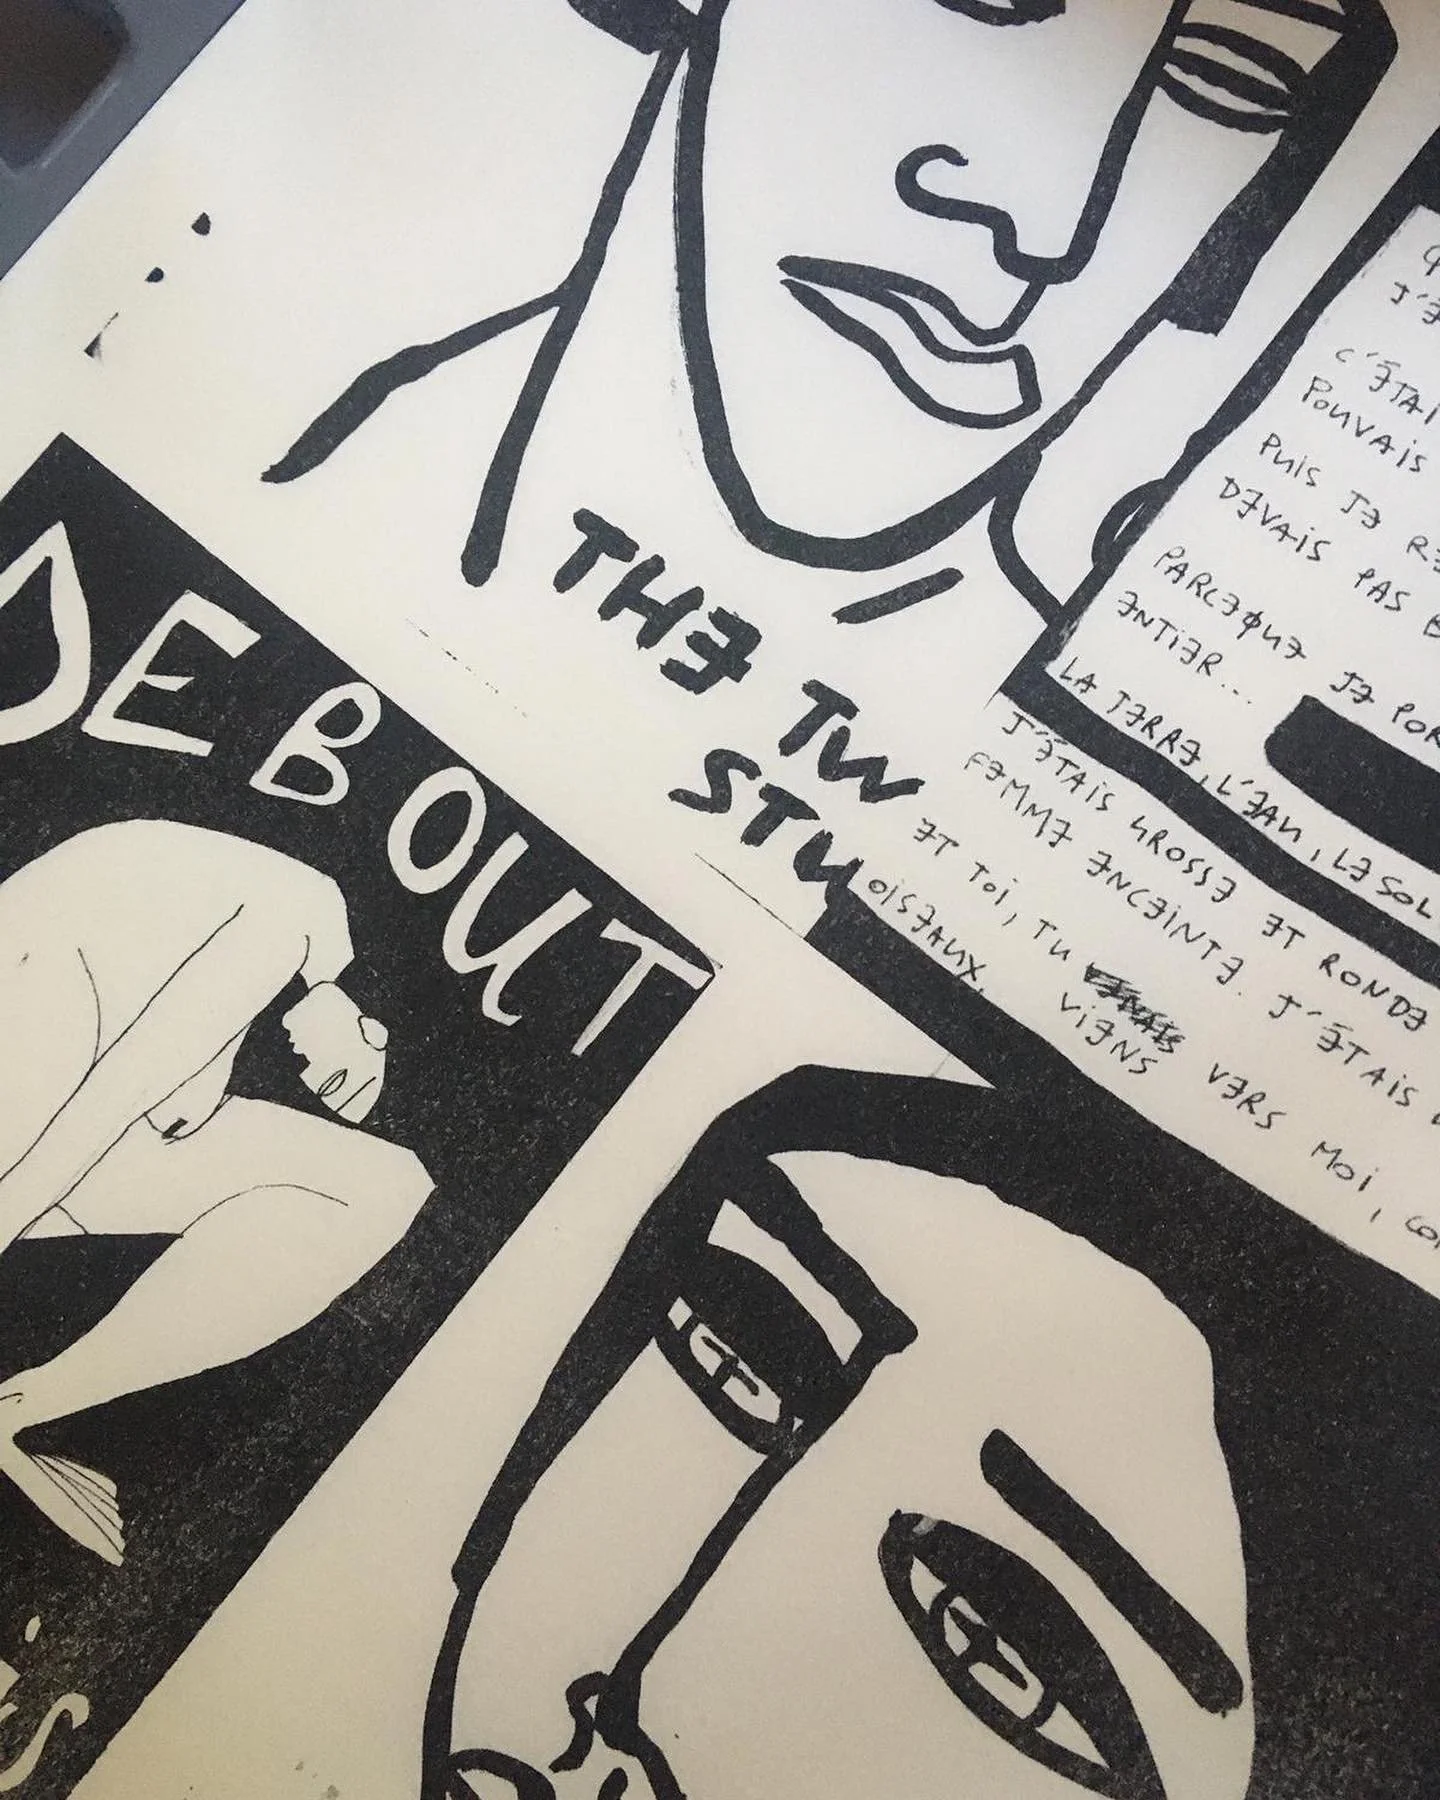 THE TW
STU
DEBOUT
J'É
C'ÉTAI
POUVAIS
PUIS JE RE
DEVAIS PAS
PARCEQUE JE POR
ENTIER...
LA TERRE, L'EAU, LE SOL
J'ÉTAIS GROSSE ET RONDE
FEMME ENCEINTE. J'ÉTAIS
ET TOI, TU VERS MOI, CO
VIENS
OISEAUX.